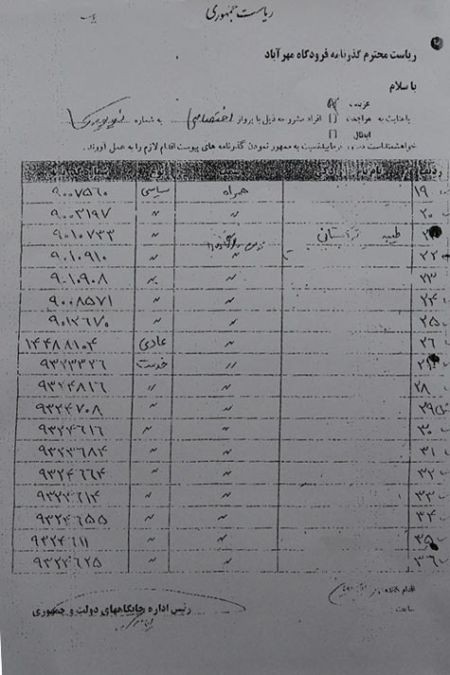 ریاست جمهوری
ریاست محترم گذرنامه فرودگاه مهرآباد
با سلام
عزیمت
با عنایت به مراجعت افراد مشروحه ذیل با پرواز اختصاصی به شماره
انتقال
خواهشمند است نسبت به ممهور نمودن گذرنامه های پیوست اقدام لازم را به عمل آورند.
۱۹ همراه سیاسی ۹۰۰۷۵۶۰
۲۰ " " ۹۰۰۳۱۹۷
۲۱ طیبه " ۹۰۱۰۷۳۳
۲۲ " " ۹۰۱۰۹۱۰
۲۳ " " ۹۰۱۰۹۰۸
۲۴ " " ۹۰۰۸۵۷۱
۲۵ " " ۹۰۱۲۶۷۰
۲۶ " عادی ۱۴۴۸۸۱۰۴
" خدمت ۹۳۲۳۳۲۶
۲۸ " " ۹۳۲۴۸۱۶
۲۹ " " ۹۳۲۴۷۰۸
۳۰ " " ۹۳۲۴۶۱۶
۳۱ " " ۹۳۲۳۶۸۴
۳۲ " " ۹۳۲۴۶۶۴
۳۳ " " ۹۳۲۳۶۱۴
۳۴ " " ۹۳۲۴۶۵۵
۳۵ " " ۹۳۲۴۶۱۱
۳۶ " " ۹۳۲۳۶۲۵
ساعت
رئیس اداره جایگاههای دولت و جمهوری